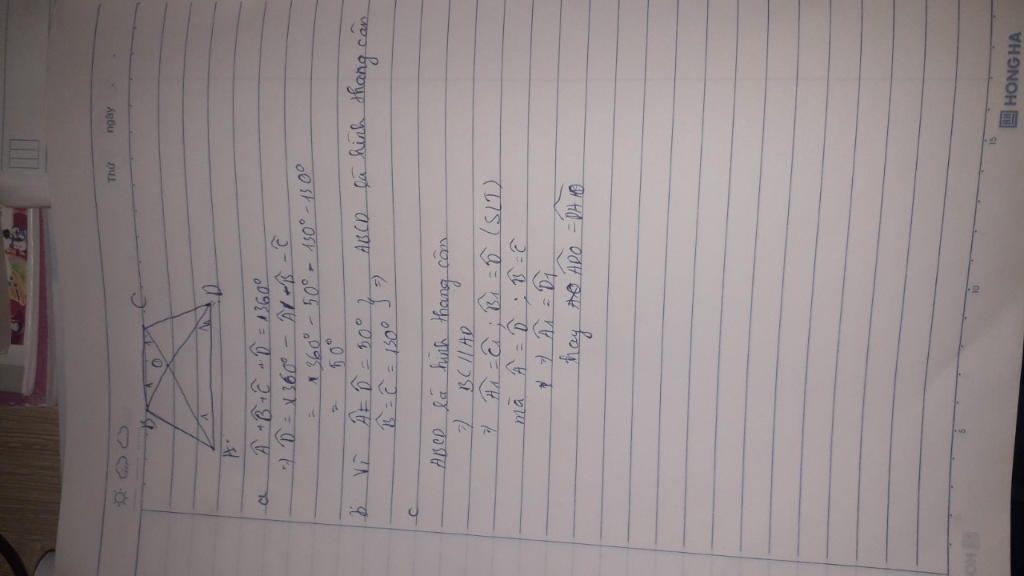 Thứ ngày
B C
O
A D
a Â + B̂ + Ĉ + D̂ = 360°
=> D̂ = 360° - Â - B̂ - Ĉ
= 360° - 50° - 130° - 130°
= 50°
b Vì Â = D̂ = 50° } => ABCD là hình thang cân
B̂ = Ĉ = 130°
c
ABCD là hình thang cân
=> BC // AD
=> Â1 = Ĉ1 ; B̂1 = D̂ (SLT)
mà Â = D̂ ; B̂ = Ĉ
=> Â1 = D̂1
hay ADO = DAO
5 10 15
HONG HA